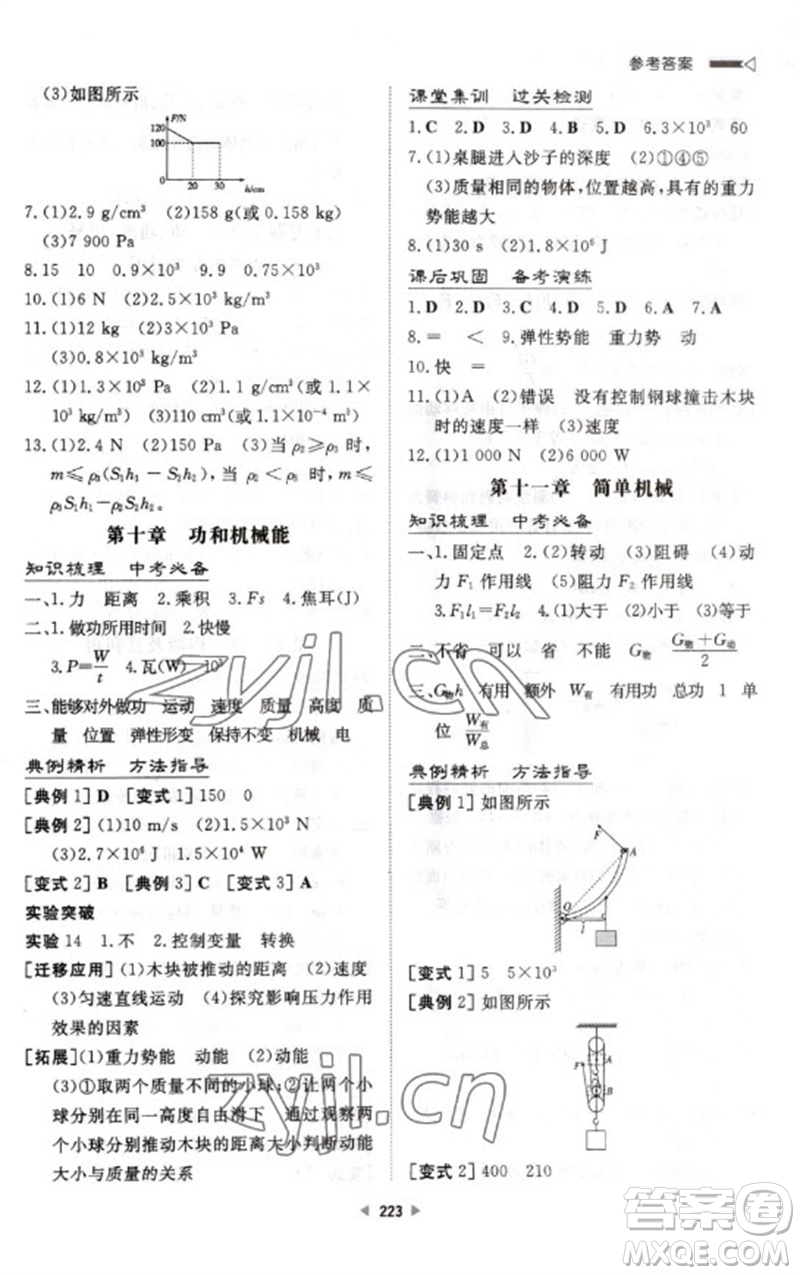 参考答案
(3)如图所示
F/N
120
100
0 20 30 h/cm
7.(1)2.9 g/cm³ (2)158 g(或 0.158 kg)
(3)7 900 Pa
8.15 10 0.9×10³ 9.9 0.75×10³
10.(1)6 N (2)2.5×10³ kg/m³
11.(1)2×10³ Pa (2)1×10³ Pa
(3)0.8×10³ kg/m³
12.(1)1.3×10³ Pa (2)1.3 g/cm³(或 1.3×
10³ kg/m³) (3)110 cm³(或 1.1×10⁻⁴ m³)
13.(1)2.4 N (2)150 Pa (3)当 ρ₂≥ρ₃ 时,
m≤ρ₃(S₁h₁−S₂h₂),当 ρ₂<ρ₃ 时, m≤
ρ₃S₁h₁−ρ₂S₂h₂。
第十章 功和机械能
知识梳理 中考必备
一、1.力 距离 2.乘积 3.Fs 4.焦耳(J)
二、1.做功所用时间 2.快慢
3.P=W/t 4.瓦(W) 10³
三、能够对外做功 运动 速度 质量 高度 质
量 位置 弹性形变 保持不变 机械 电
典例精析 方法指导
[典例1]D [变式1]150 0
[典例2](1)10 m/s (2)1.5×10³ N
(3)2.7×10⁶ J 1.5×10⁴ W
[变式2]B [典例3]C [变式3]A
实验突破
实验 14 1.不 2.控制变量 转换
[迁移应用](1)木块被推动的距离 (2)速度
(3)匀速直线运动 (4)探究影响压力作用
效果的因素
[拓展](1)重力势能 动能 (2)动能
(3)①取两个质量不同的小球;②让两个小
球分别在同一高度自由滑下 通过观察两
个小球分别推动木块的距离大小判断动能
大小与质量的关系
课堂集训 过关检测
1.C 2.D 3.D 4.B 5.D 6.3×10³ 60
7.(1)桌腿进入沙子的深度 (2)①④⑤
(3)质量相同的物体,位置越高,具有的重力
势能越大
8.(1)30 s (2)1.8×10⁶ J
课后巩固 备考演练
1.D 2.D 3.C 4.D 5.D 6.A 7.A
8.= < 9.弹性势能 重力势 动
10.快 =
11.(1)A (2)错误 没有控制钢球撞击木块
时的速度一样 (3)速度
12.(1)1 000 N (2)6 000 W
第十一章 简单机械
知识梳理 中考必备
一、1.固定点 2.(2)转动 (3)阻碍 (4)动
力 F₁ 作用线 (5)阻力 F₂ 作用线
3.F₁l₁=F₂l₂ (1)大于 (2)小于 (3)等于
二、不省 可以 不能 不能 G物 (G物+G动)/2
三、G物h 有用 额外 W有 有用功 总功 1 单
位 W有/W总
典例精析 方法指导
[典例1]如图所示
F
A
O
l
[变式1]5 5×10³
[典例2]如图所示
F
A
B
[变式2]400 210
223
zyjl.cn
zyjl.cn
答案圈
MXQE.COM